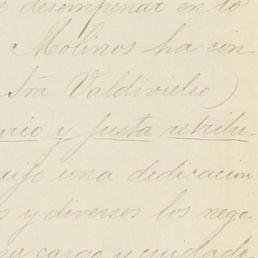 e desempeñar en lo
Molinos ha con
tra Valdivieso)
nio y justa retribu-
uije una dedicacion
s y diversos los nego-
cargo y cuidado